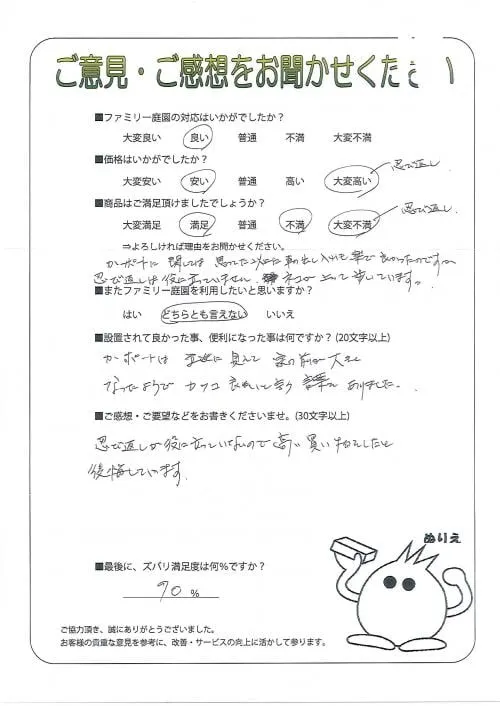 ご意見・ご感想をお聞かせください
■ファミリー庭園の対応はいかがでしたか？
大変良い 良い 普通 不満 大変不満
■価格はいかがでしたか？ 忍び返し
大変安い 安い 普通 高い 大変高い
■商品はご満足頂けましたでしょうか？ 忍び返し
大変満足 満足 普通 不満 大変不満
⇒よろしければ理由をお聞かせください。
カーポートに関しては思ってた以上に車の出し入れも楽で良かったのですが、
忍び返しは役に立っていません。ネコが上って歩いています。
■またファミリー庭園を利用したいと思いますか？
はい どちらとも言えない いいえ
■設置されて良かった事、便利になった事は何ですか？(20文字以上)
カーポートは立派に見えて家の前が大きく
なったようでカッコ良い
ありました。
■ご感想・ご要望などをお書きくださいませ。(30文字以上)
忍び返しが役に立っていないので高い買い物をしたと
後悔しています。
ぬりえ
■最後に、ズバリ満足度は何%ですか？
90 %
ご協力頂き、誠にありがとうございました。
お客様の貴重な意見を参考に、改善・サービスの向上に活かして参ります。